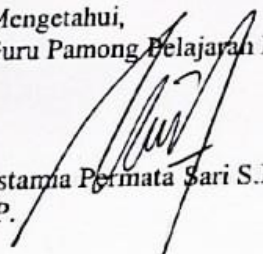 Mengetahui,
Guru Pamong Pelajaran
Permata Sari S.
P.